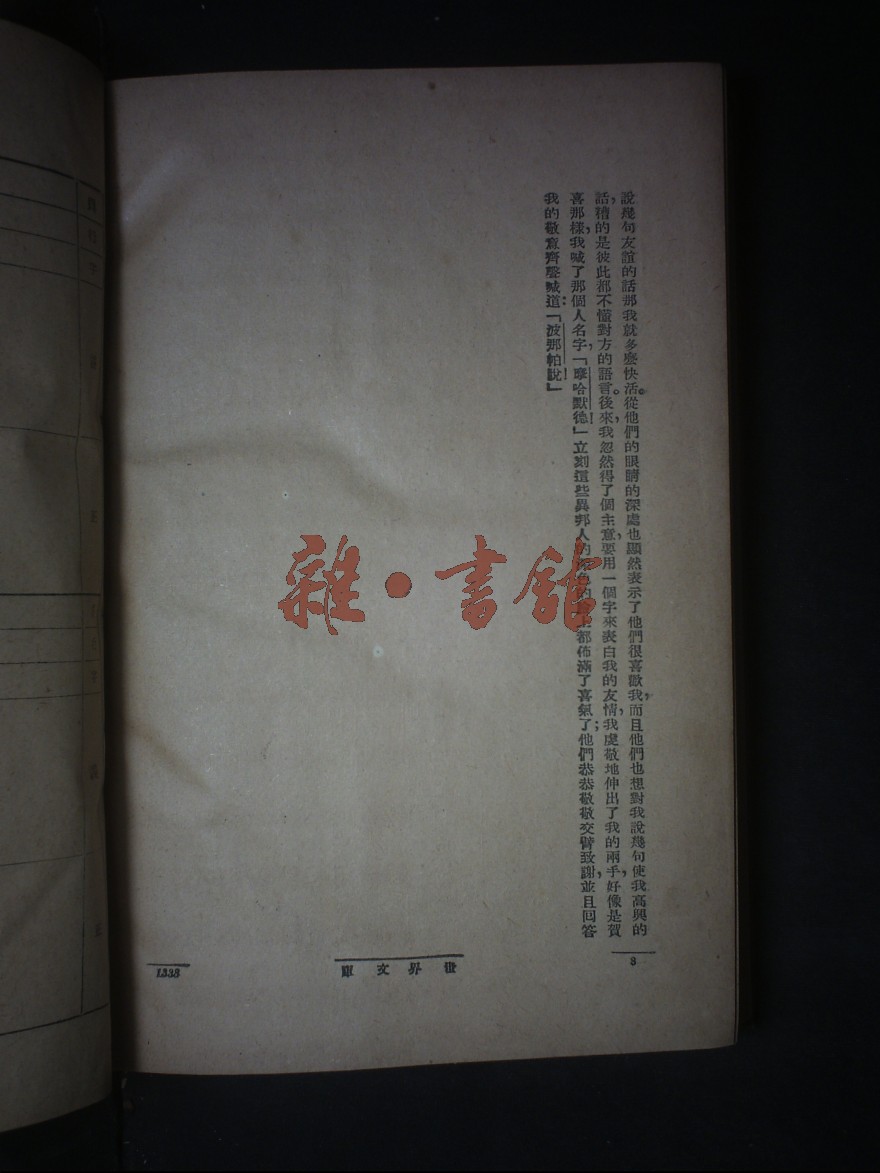 說幾句友誼的話那我就多麼快活。從他們的眼睛的深處也顯然表示了他們很喜歡我,而且他們也想對我說幾句使我高興的
話,糟的是彼此都不懂對方的語言。後來,我忽然得了個主意,要用一個字來表白我的友情,我虔敬地伸出了我的兩手,好像是賀
喜那樣,我喊了那個人名字,「摩哈默德!」立刻這些異邦人的深色的上都佈滿了喜氣了;他們恭恭敬敬交臂致謝,並且回答
我的敬意齊聲喊道:「波那帕說!」
雜•書館
3
世界文庫
1338